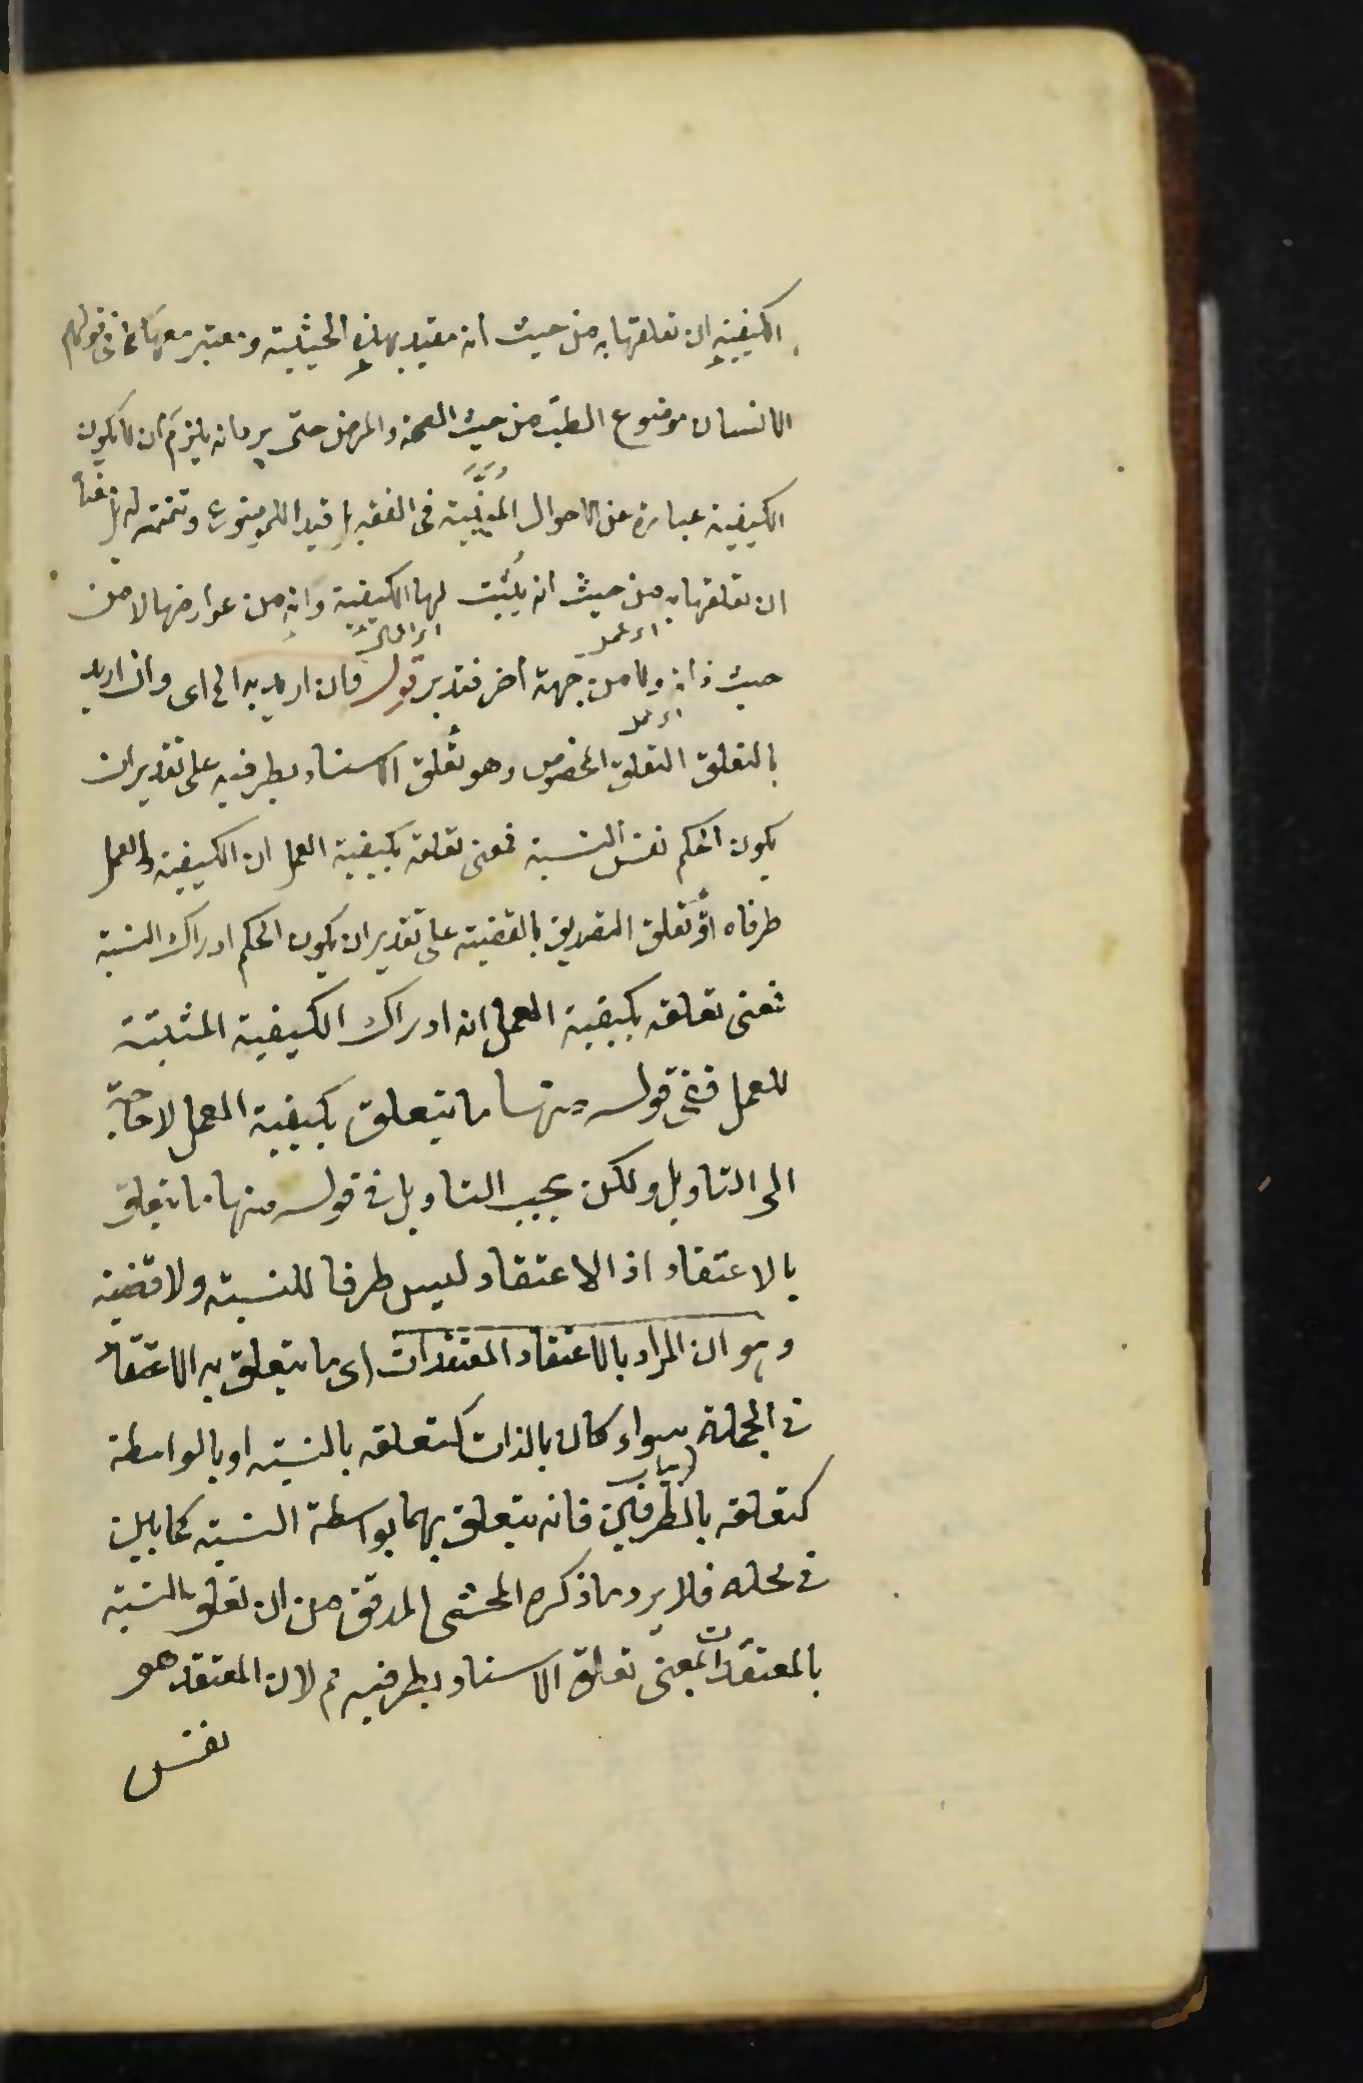 الكيفية ان تعلقها به من حيث انه مقيد بهذه الحيثية ومعتبر معها كما في قولهم
الانسان موضوع الطب من حيث الصحة والمرض حتى يرد انه يلزم ان لا يكون
الكيفية عبارة عن الاحوال المبينة في الفقه بل قيدا للموضوع وتتمة له بل
ان تعلقها به من حيث انه يثبت لها الكيفية وانه من عوارضها لا من
اى العمل
حيث ذاته ولا من جهة اخر فتدبر قوله فان اريد به الخ اى وان اريد
بالتعلق التعلق المخصوص وهو تعلق الاسناد بطرفيه على تقدير ان
يكون الحكم نفس النسبة فمعنى تعلقه بكيفية العمل ان الكيفية والعمل
طرفاه او تعلق التصديق بالقضية على تقدير ان يكون الحكم ادراك النسبة
فمعنى تعلقه بكيفية العمل انه ادراك الكيفية المثبتة
للعمل ففى قوله منها ما يتعلق بكيفية العمل لا حاجة
الى التاويل ولكن يجب التاويل فى قوله منها ما يتعلق
بالاعتقاد اذ الاعتقاد ليس طرفا للنسبة ولا قضية
وهو ان المراد بالاعتقاد المعتقدات اى ما يتعلق به الاعتقاد
فى الجملة سواء كان بالذات كتعلقه بالنسبة او بالواسطة
كتعلقه بالطرفين فانه يتعلق بهما بواسطة النسبة كما بين
فى محله فلا يرد ما ذكره المحشى المدقق من ان تعلق النسبة
بالمعتقدات بمعنى تعلق الاسناد بطرفيه مم لان المعتقد هو
نفس